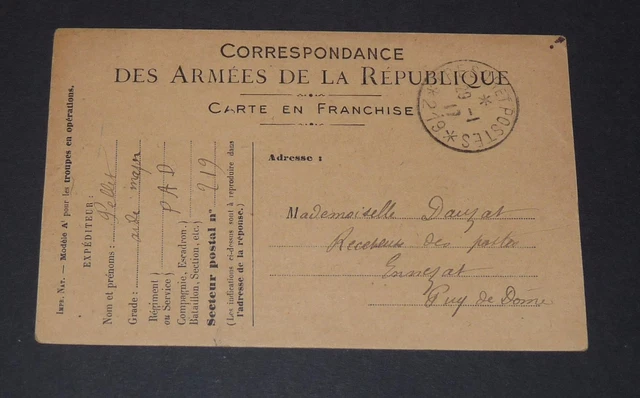 CORRESPONDANCE
DES ARMÉES DE LA RÉPUBLIQUE
CARTE EN FRANCHISE
ET POSTES
* 219 *
29 -1
17
Adresse :
Mademoiselle Dauzat
Receveuse des postes
Ennezat
Puy de Dôme
IMPR. NAT. — Modèle A¹ pour les troupes en opérations.
EXPÉDITEUR :
Nom et prénoms : Pellet
Grade : aide major
Régiment
ou Service) P A D
Compagnie, Escadron,
Bataillon, Section, etc.)
Secteur postal n° 219
(Les indications ci-dessus sont à reproduire dans
l'adresse de la réponse.)